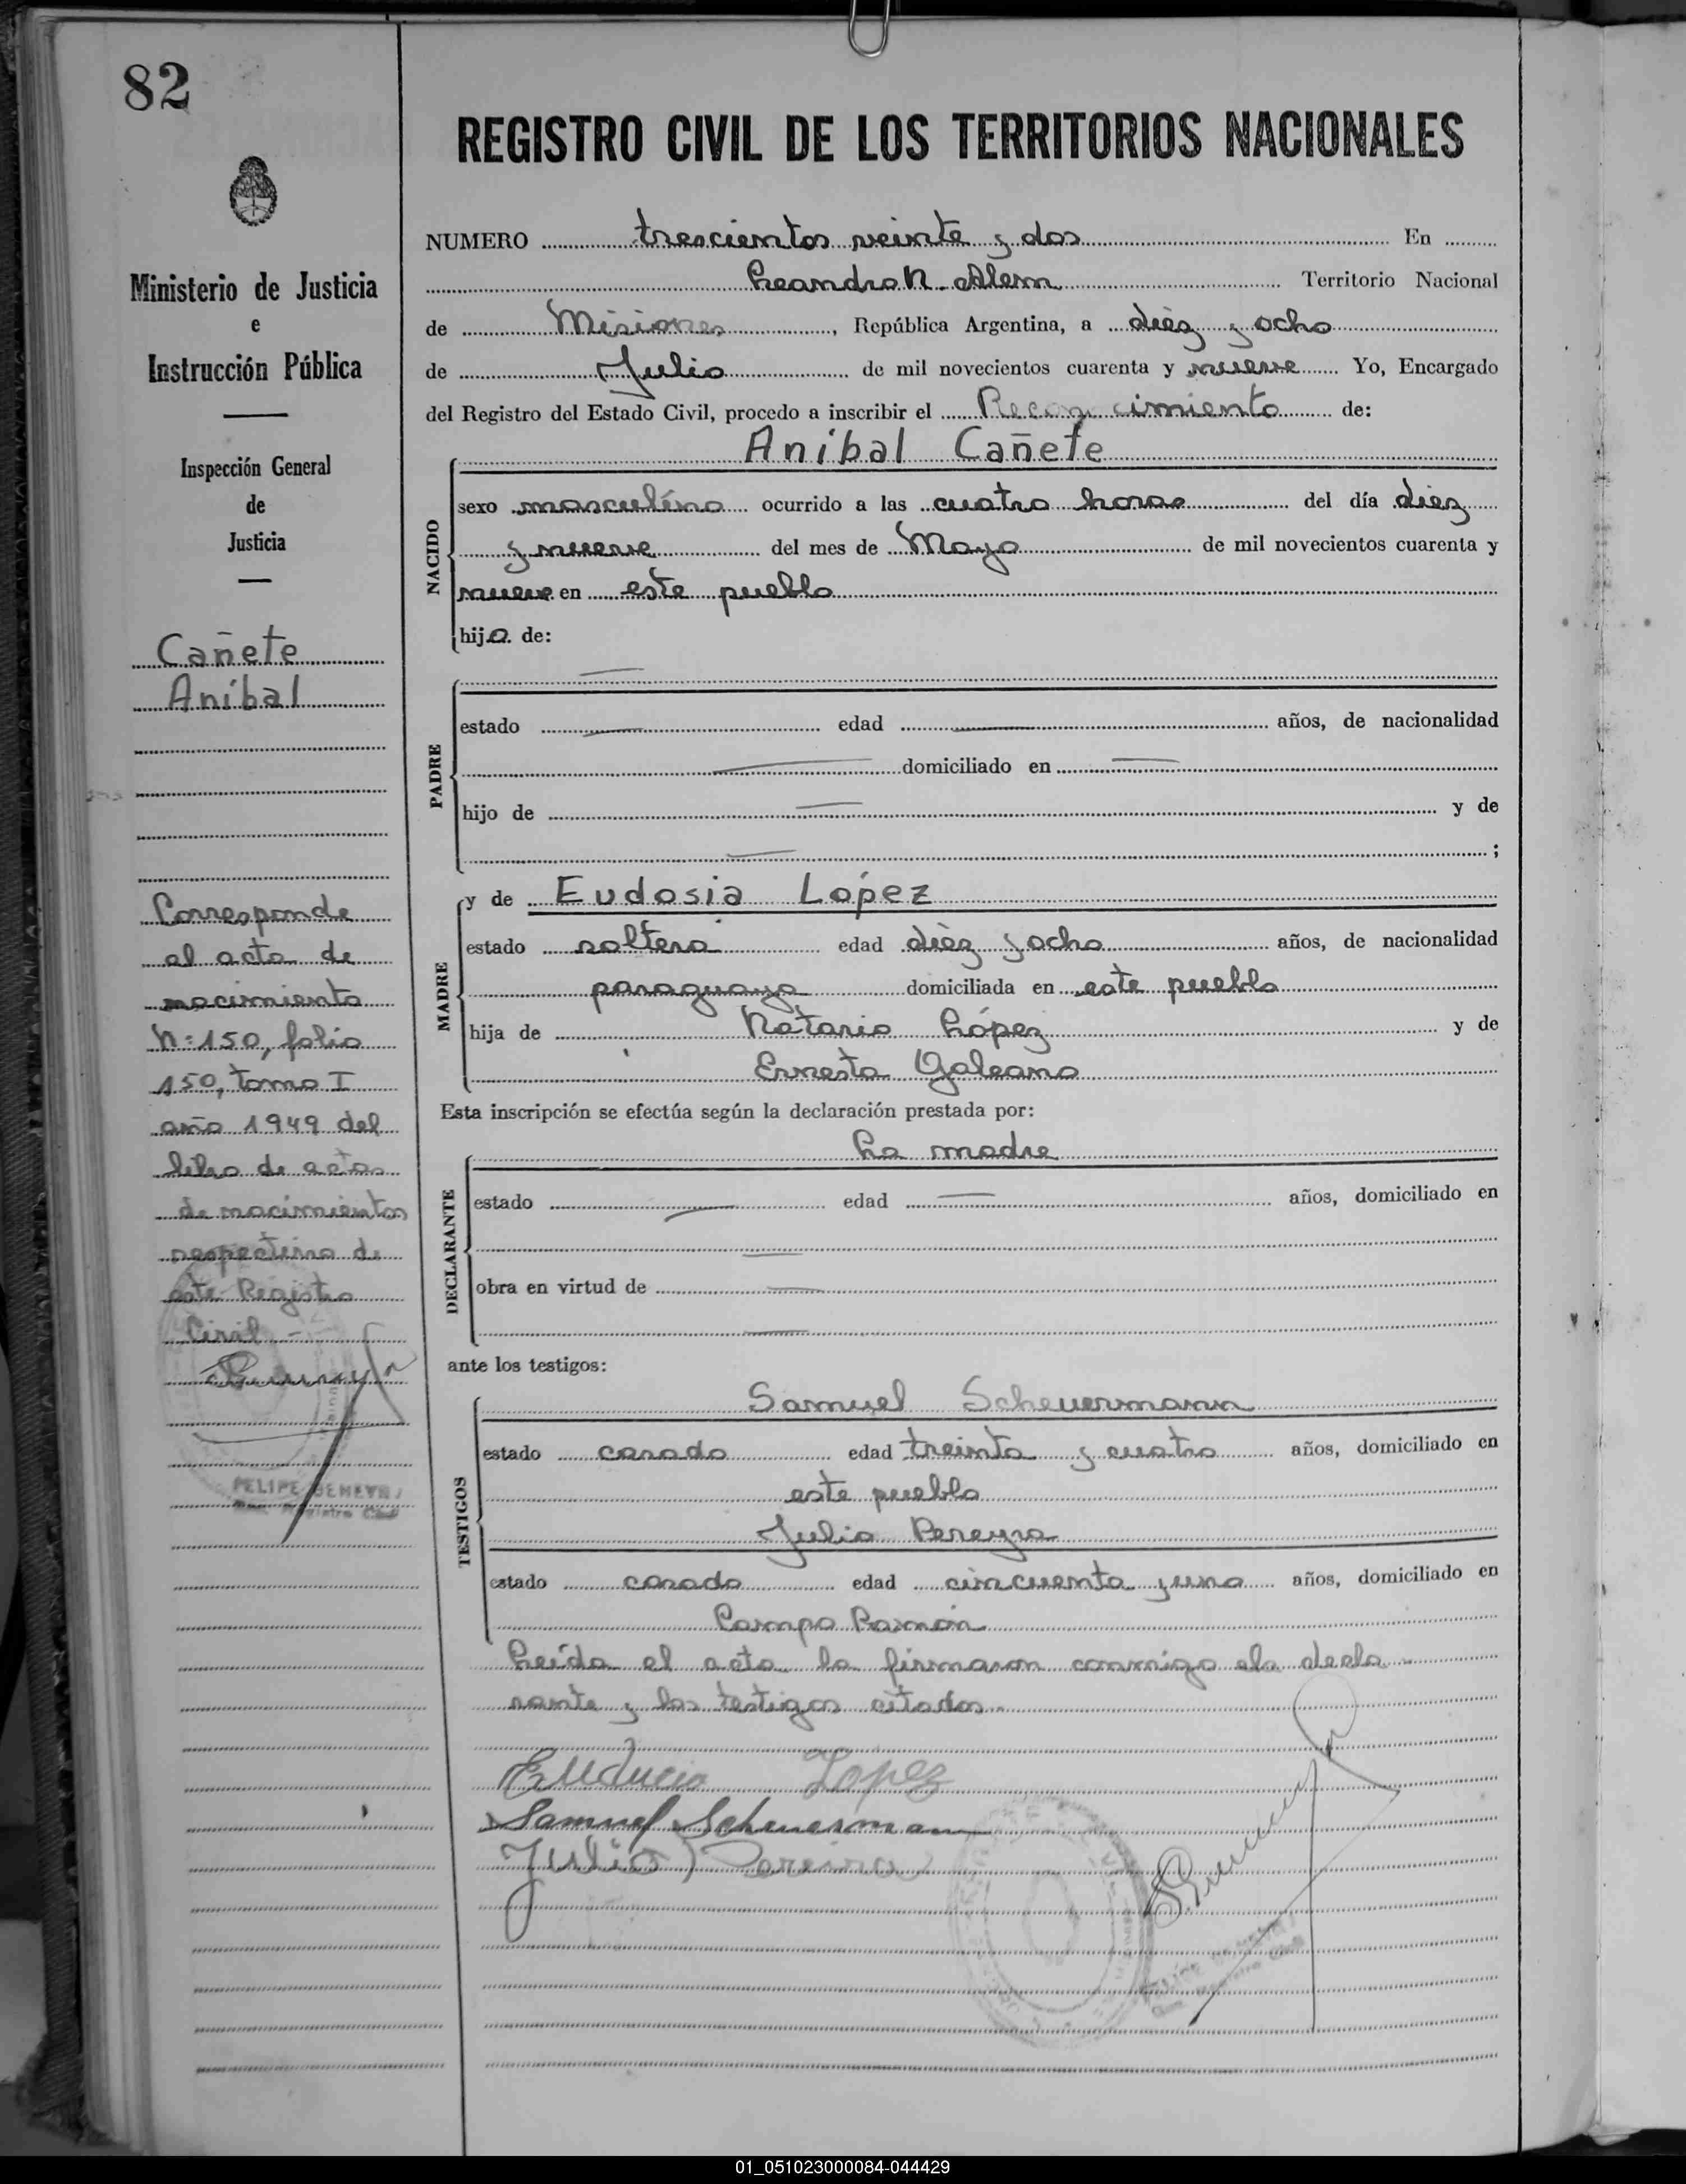 82
REGISTRO CIVIL DE LOS TERRITORIOS NACIONALES
Ministerio de Justicia
e
Instrucción Pública
Inspección General
de
Justicia
Cañete
Aníbal
Corresponde
al acta de
nacimiento
Nº 150, folio
150, tomo I
año 1949 del
libro de actas
de nacimientos
respectivo de
este Registro
Civil.-
FELIPE
Registro Civil
NUMERO trescientos veinte y dos En
Leandro N. Alem Territorio Nacional
de Misiones, República Argentina, a diéz y ocho
de Julio de mil novecientos cuarenta y nueve Yo, Encargado
del Registro del Estado Civil, procedo a inscribir el Reconocimiento de:
NACIDO
Aníbal Cañete
sexo masculíno ocurrido a las cuatro horas del día diez
y nueve del mes de Mayo de mil novecientos cuarenta y
nueve en este pueblo
hijo de:
PADRE
estado edad años, de nacionalidad
domiciliado en
hijo de y de
;
MADRE
y de Eudosia López
estado soltera edad diéz y ocho años, de nacionalidad
paraguaya domiciliada en este pueblo
hija de Natario López y de
Ernesta Galeano
Esta inscripción se efectúa según la declaración prestada por:
DECLARANTE
La madre
estado edad años, domiciliado en
obra en virtud de
ante los testigos:
TESTIGOS
Samuel Scheuermann
estado casado edad treinta y cuatro años, domiciliado en
este pueblo
Julio Pereyra
estado casado edad cincuenta y uno años, domiciliado en
Campo Ramón
Leída el acta la firmaron conmigo la decla
rante y los testigos citados.-
Euducia Lopez
Samuel Scheuerman
Julio Pereira
01_051023000084-044429